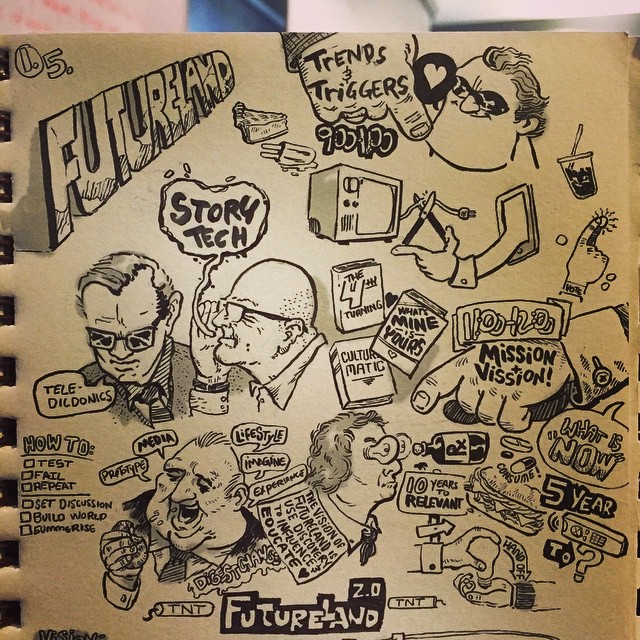 0.5.
FUTURELAND
TRENDS
&
TRiGGERS
900-1100
STORY
TECH
THE
4TH
TURNING
WHAT'S
MINE
IS
YOURS
CULTURE
MATIC
VOTE
1100-1200
MISSION
+
VISSION!
TELE-
DICDONICS
HOW TO:
TEST
FAIL
REPEAT
SET DISCUSSION
BUILD WORLD
SUMMERISE
MEDIA
LIFESTYLE
PROTETYPE
IMAGINE
EXPERIENCE
DIGEST CHANGE
THE VISION OF
FUTURELAND IS
JUST DISCOVERY
TO INFLUENCE +
EDUCATE
RX
10 YEARS TO
RELEVANT
CONSUME
WHAT IS
"NOW"
5 YEAR
TO ?
HAND OFF
TNT
FUTURELAND
2.0
TNT
VISION: